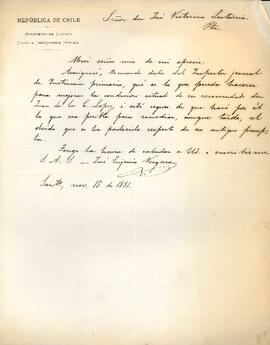 REPÚBLICA DE CHILE
MINISTERIO DE JUSTICIA
CULTO E INSTRUCCION PÚBLICA
Señor don José Victorino Lastarria
Pte.
Mui señor mio de mi aprecio
Aseguré, tomando datos del Inspector jeneral
de Instruccion primaria, que es lo que pueda hacerse
para mejorar la condicion actual de su recomendado don
Juan de la C. Lopez, i esté seguro de que haré por él
lo que sea posible para remediar, aunque tarde, el
olvido que se ha padecido respecto de su antiguo
Tengo la honra de saludar a Ud. i suscribirme
S. A. S — José Eujenio Vergara
Santo, nov. 15 de 1881.